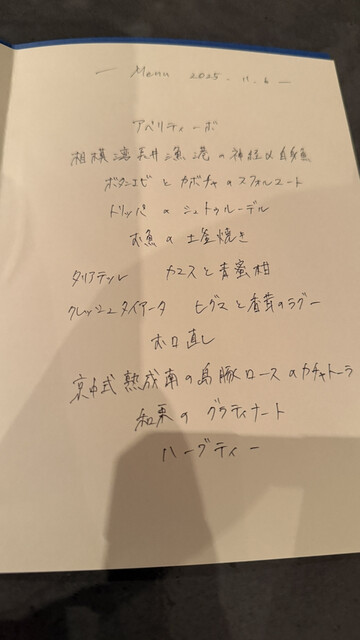 — Menu 2025. 11. 6 —
アペリティーボ
相模湾長井漁港の神経〆自魚
ボタンエビとカボチャのスフォルマート
トリッパのシュトゥルーデル
お魚の土釜焼き
タリアテッレ カマスと青蜜柑
クレッシェタイアータ ヒグマと香茸のラグー
お口直し
京中式熟成南の島豚ロースのカチャトーラ
和栗のグラティナート
ハーブティー